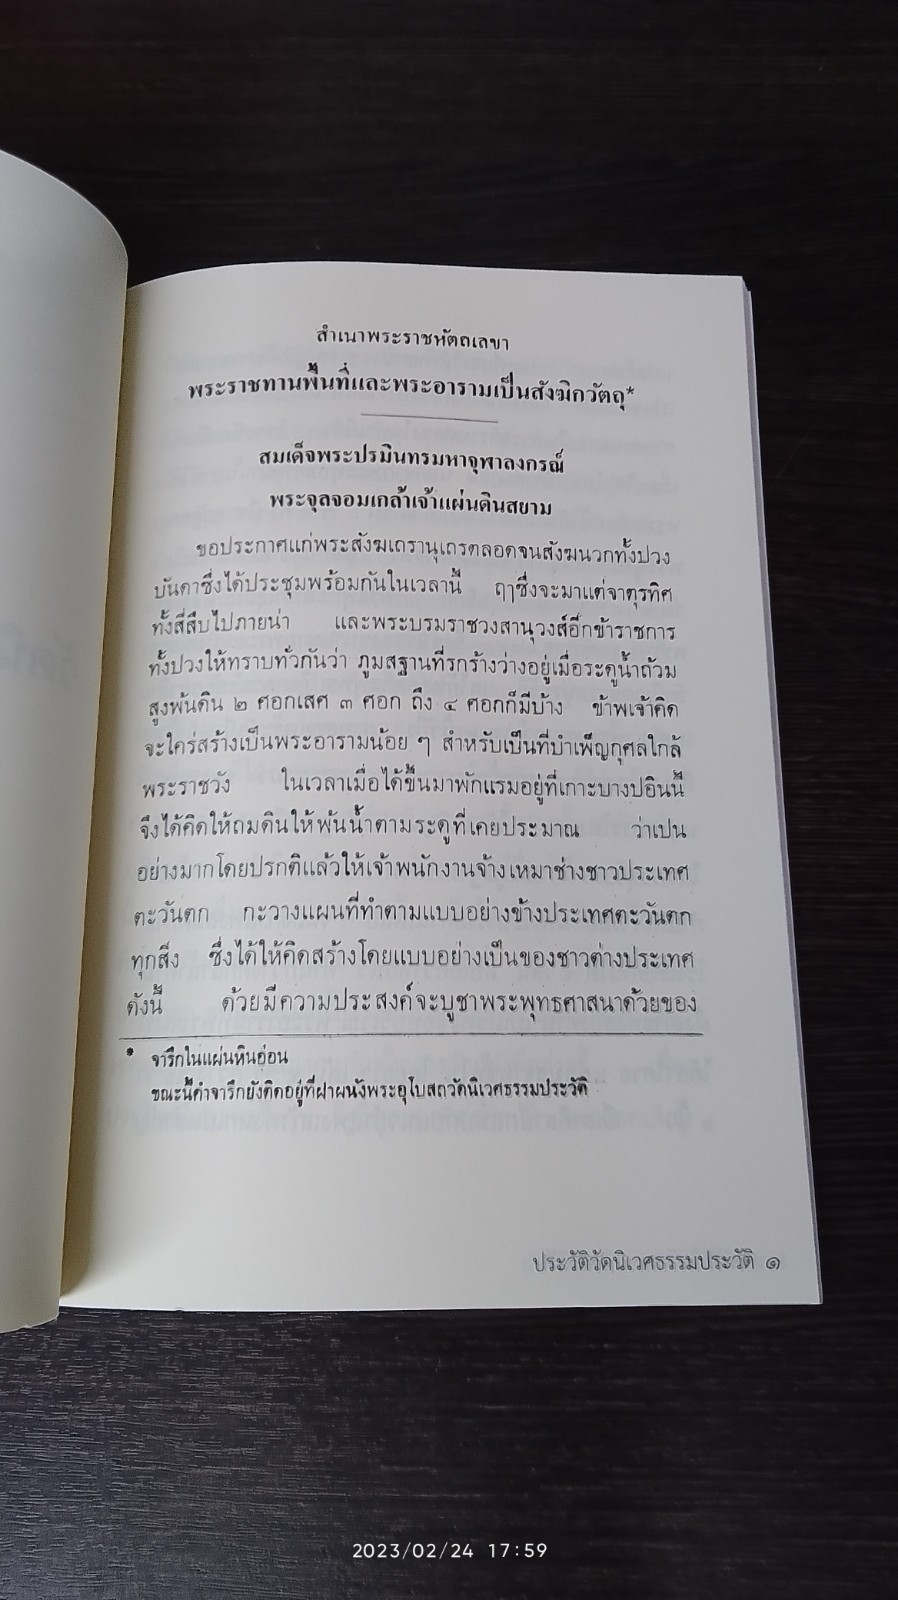 สำเนาพระราชหัตถเลขา
พระราชทานพื้นที่และพระอารามเป็นสังฆิกวัตถุ*
สมเด็จพระปรมินทรมหาจุฬาลงกรณ์
พระจุลจอมเกล้าเจ้าแผ่นดินสยาม
ขอประกาศแก่พระสังฆเถรานุเถรตลอดจนสังฆนวกทั้งปวง
บันดาซึ่งได้ประชุมพร้อมกันในเวลานี้ ฤๅซึ่งจะมาแต่จาตุรทิศ
ทั้งสี่สืบไปภายน่า และพระบรมราชวงสานุวงส์อีกข้าราชการ
ทั้งปวงให้ทราบทั่วกันว่า ภูมสฐานที่รกร้างว่างอยู่เมื่อระดูน้ำถ้วม
สูงพ้นดิน ๒ ศอกเสศ ๓ ศอก ถึง ๔ ศอกก็มีบ้าง ข้าพเจ้าคิด
จะใคร่สร้างเป็นพระอารามน้อย ๆ สำหรับเป็นที่บำเพ็ญกุศลใกล้
พระราชวัง ในเวลาเมื่อได้ขึ้นมาพักแรมอยู่ที่เกาะบางปอินนี้
จึงได้คิดให้ถมดินให้พ้นน้ำตามระดูที่เคยประมาณ ว่าเปน
อย่างมากโดยปรกติแล้วให้เจ้าพนักงานจ้างเหมาช่างชาวประเทศ
ตะวันตก กะวางแผนที่ทำตามแบบอย่างข้างประเทศตะวันตก
ทุกสิ่ง ซึ่งได้ให้คิดสร้างโดยแบบอย่างเป็นของชาวต่างประเทศ
ดังนี้ ด้วยมีความประสงค์จะบูชาพระพุทธศาสนาด้วยของ
* จารึกในแผ่นหินอ่อน
ขณะนี้คำจารึกยังติดอยู่ที่ฝาผนังพระอุโบสถวัดนิเวศธรรมประวัติ
ประวัติวัดนิเวศธรรมประวัติ ๑
2023/02/24 17:59